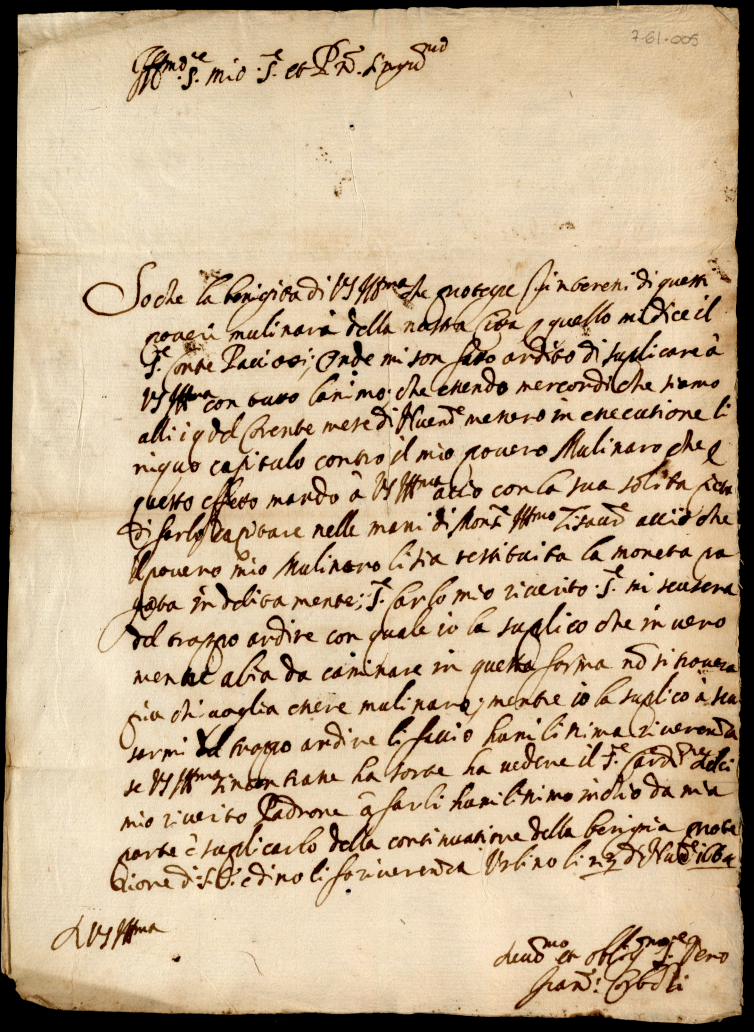 7-61-005
Ill.mo S.re mio S.re et P.ron
So che la benignita di VS Ill.ma che protege l'interessi di questi
poveri mulinari della nostra Cita p quello mi dice il
S.re Conte Paciotti; Onde mi son fatto ardito di suplicare à
VS Ill.ma con tutto lanimo; che essendo mercordi che siamo
alli 19 del Corente mese di Nuenb.e messero in essecutione li
niquo capitulo contro il mio povero Mulinaro che p
questo effetto mando à VS Ill.ma acio con la sua solita
di farlo capitare nelle mani di Mons.r Ill.mo acciò che
il povero mio Mulinaro li sia restituita la moneta pa
gata indebita mente; S.r Carlo mio riverito S.re mi scusera
del troppo ardire con quale io la suplico che in vero
mentre abia da caminare in questa forma nõ si trovera
piu chi voglia essere mulinaro; mentre io la suplico à scu
sarmi del troppo ardire li faccio humilissima riverenza
se VS Ill.ma ha sorte ha vedere il S.re Card.le
mio riverito Padrone à farli humilissimo inchino da mia
parte è suplicarlo della continuatione della benignia prote
tione di S. E. e di no li fo riverenza Urbino li 23 di Nue.e 166
D VS Ill.ma
deuo.mo et oblig.mo S.re Vero
Fran.o